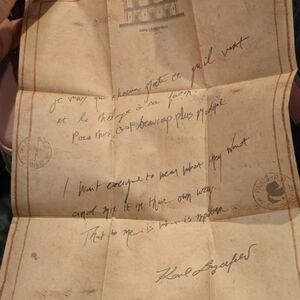 Je veux que chacun porte ce qu'il veut
et le mélange à sa façon.
Pour moi, c'est beaucoup plus moderne
I want everyone to wear what they want
and mix it in their own way.
That to me is what is modern.
Karl Lagerfeld